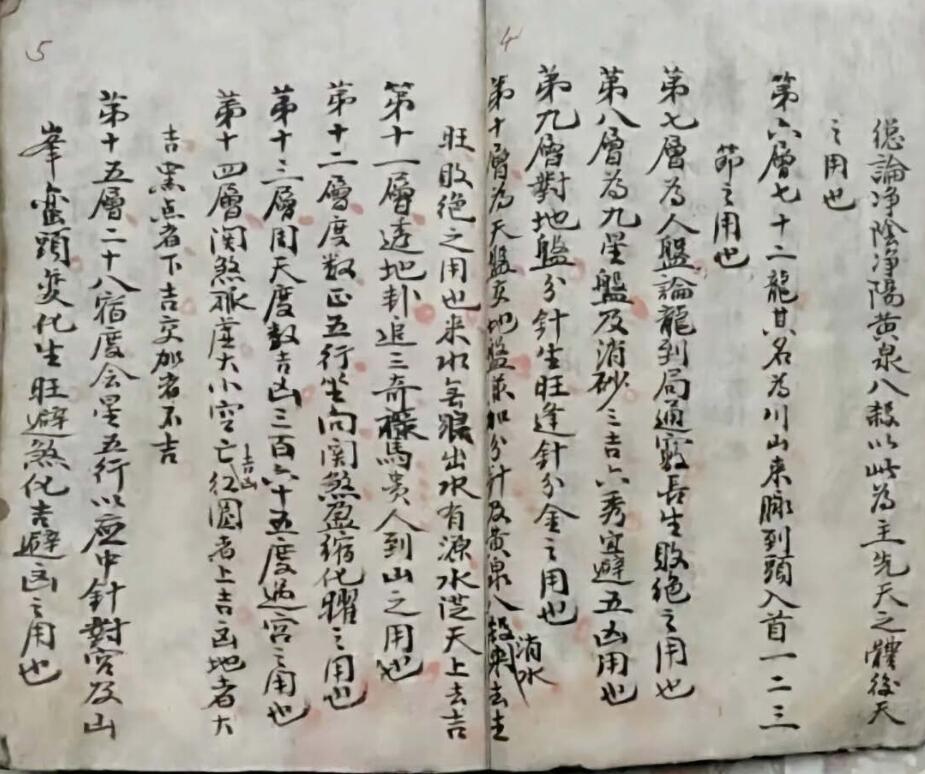 4
緫論净陰净陽黄泉八殺以此為主先天之體後天
之用也
第六層七十二龍其名為川山来脉到頭入首一二三
節之用也
第七層為人盤論龍到局通竅長生敗絶之用也
第八層為九星盤及消砂三吉六秀宜避五凶用也
第九層對地盤分針生旺逢針分金之用也
第十層為天盤交地盤兼加分針及黄泉八殺消水去生
旺敗绝之用也来水去出水有源水従天上去吉
5
第十一層透地卦追三奇祿馬貴人到山之用也
第十二層度数正五行坐向関煞盈缩化曜之用也
第十三層周天度數吉凶三百六十五度過宮之用也
第十四層関煞度大小空亡吉凶红圆者上吉凶地者大
吉黑点者下吉交加者不吉
第十五層二十八宿度会星五行以应中針對宮及山
峯巒頭变化生旺避煞化吉避凶之用也